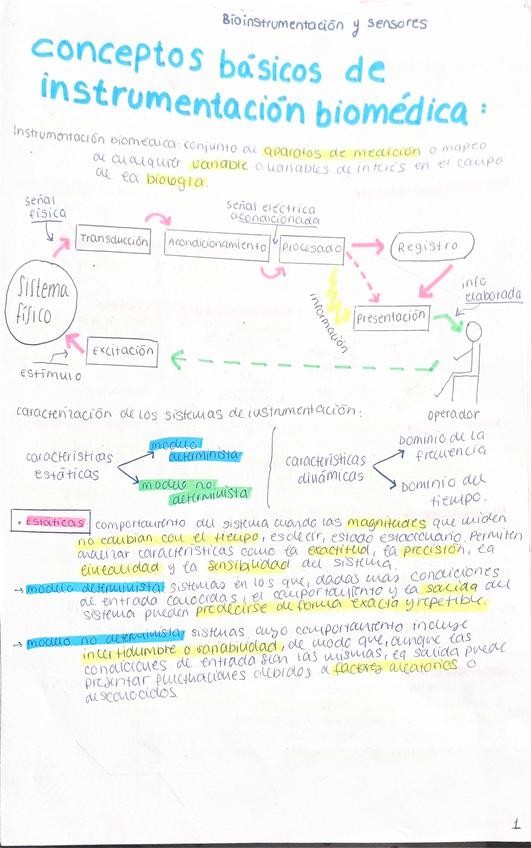 Bioinstrumentación y sensores
conceptos básicos de
instrumentación biomédica:
Instrumentación biomédica: conjunto de aparatos de medición o mapeo
de cualquier variable o variables de interés en el campo
de la biología.
señal
física
señal eléctrica
acondicionada
Transducción
Acondicionamiento
Procesado
Registro
Sistema
físico
información
Presentación
info
elaborada
Excitación
ESTÍMULO
operador
caracterización de los sistemas de instrumentación:
características
estáticas
modelo
determinista
modelo no
determinista
características
dinámicas
Dominio de la
frecuencia
Dominio del
tiempo.
• Estáticas comportamiento del sistema cuando las magnitudes que miden
no cambian con el tiempo, es decir, estado estacionario. Permiten
analizar características como la exactitud, la precisión, la
linealidad y la sensibilidad del sistema.
→ modelo determinista: sistemas en los que, dadas unas condiciones
de entrada conocidas, el comportamiento y la salida del
sistema pueden predecirse de forma exacta y repetible.
→ modelo no determinista: sistemas cuyo comportamiento incluye
incertidumbre o variabilidad, de modo que, aunque las
condiciones de entrada sean las mismas, la salida puede
presentar fluctuaciones debidas a factores aleatorios o
desconocidos
1